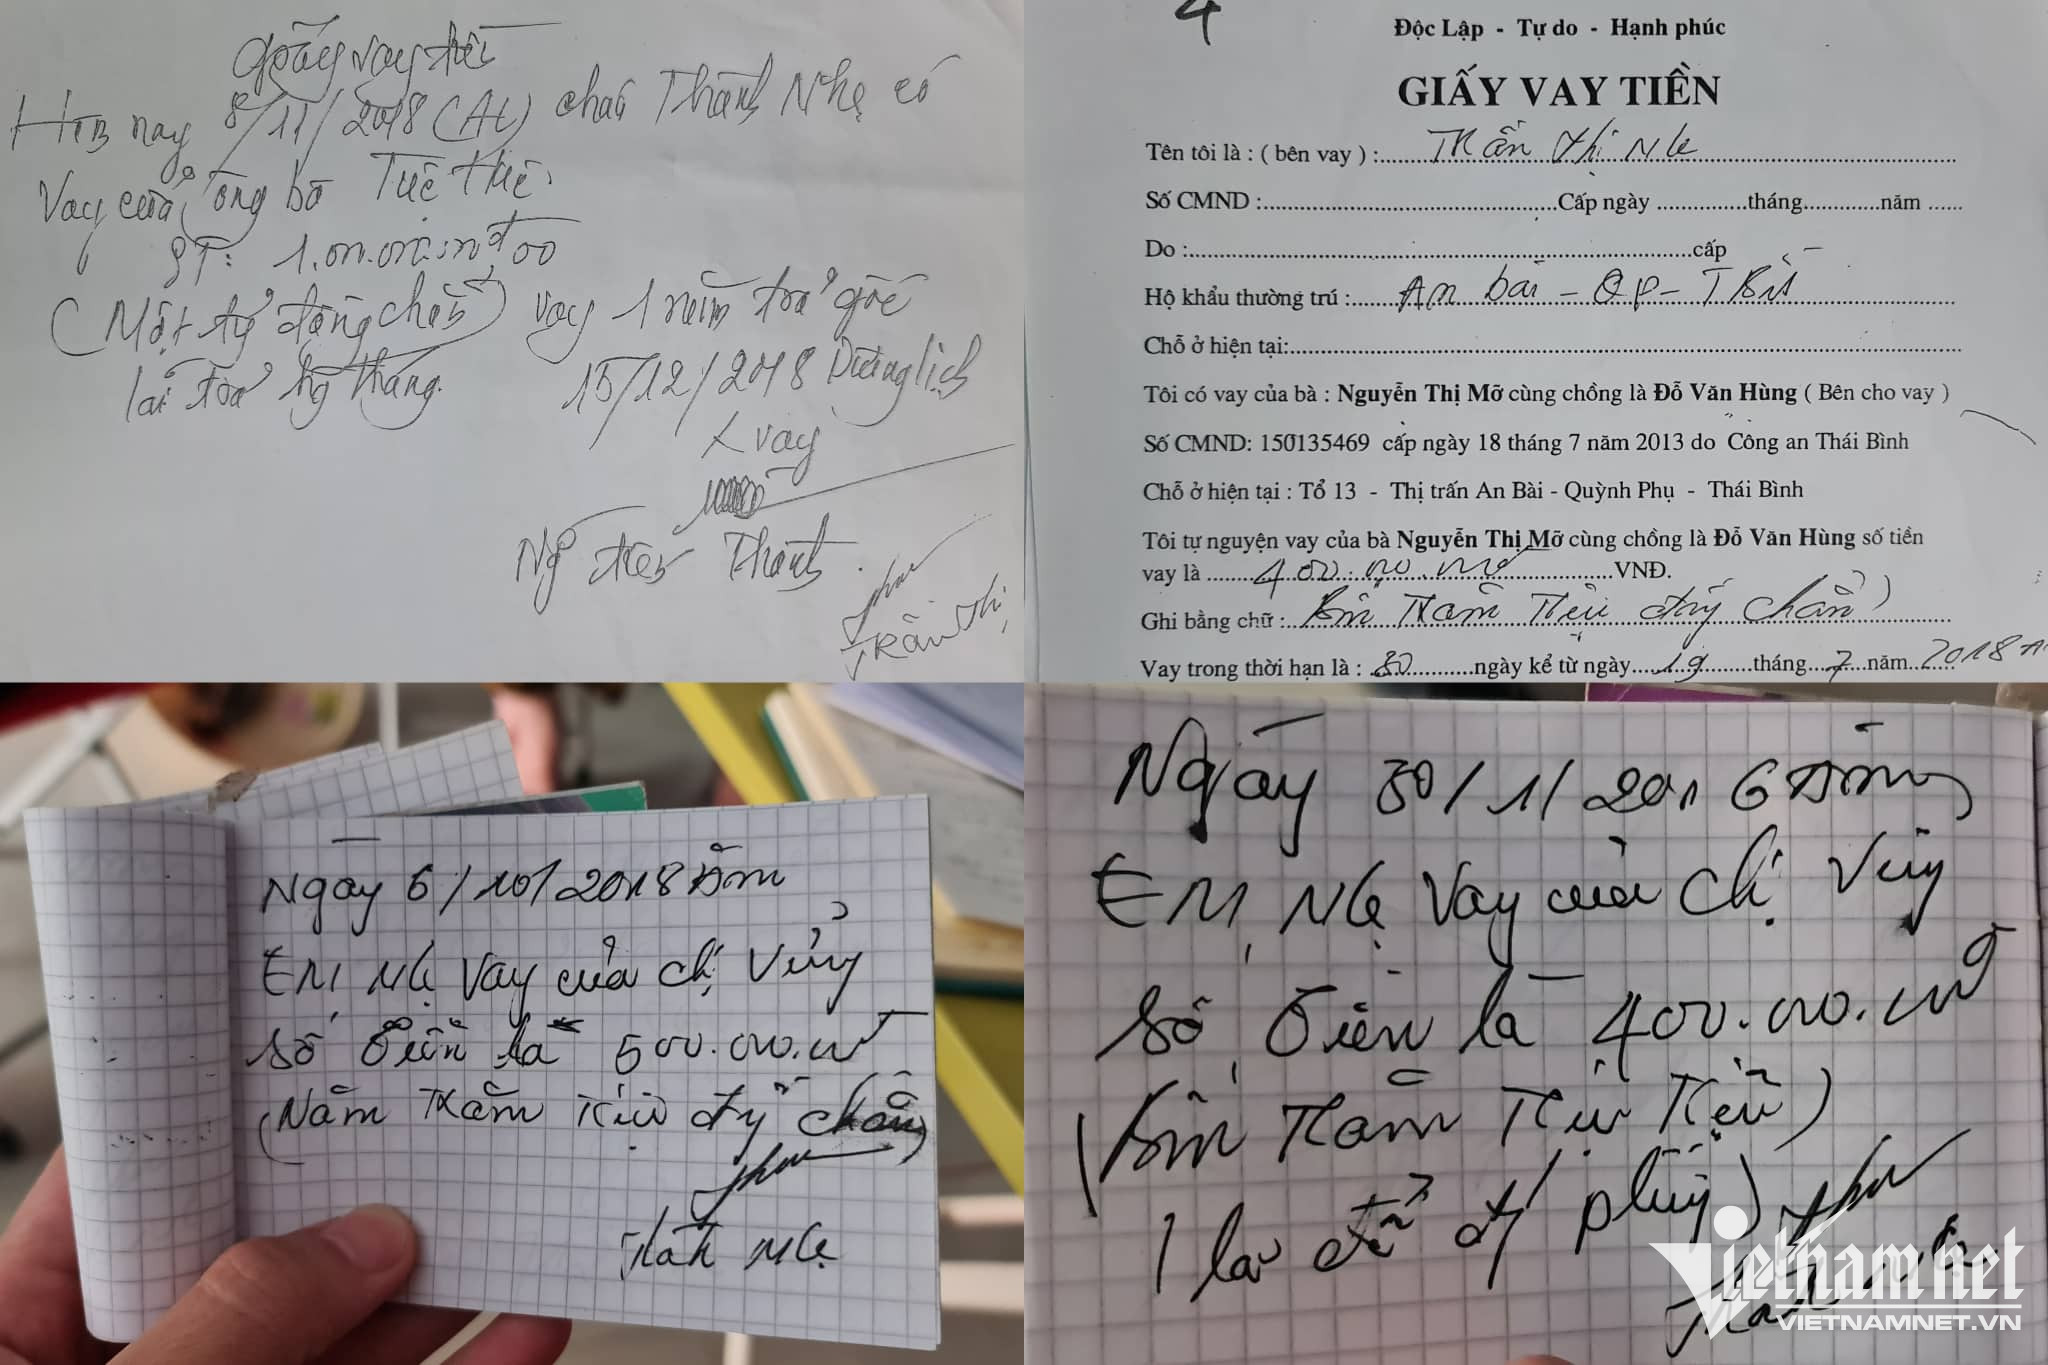 Giấy vay tiền
Hôm nay 8/11/2018 (AL) cháu Thành Nhẹ có
Vay của ông bà Tuệ
ST: 1.000.000.000đ00
(Một tỷ đồng chẵn) vay 1 năm trả gốc
lãi trả hg tháng.
15/12/2018 Dương lịch
vay
Thành
Trần Thị
4
Độc Lập - Tự do - Hạnh phúc
GIẤY VAY TIỀN
Tên tôi là : ( bên vay ) : Trần Thị Nhẹ
Số CMND : Cấp ngày tháng năm
Do : cấp
Hộ khẩu thường trú : An bài - QP - TBình
Chỗ ở hiện tại:
Tôi có vay của bà : Nguyễn Thị Mỡ cùng chồng là Đỗ Văn Hùng ( Bên cho vay )
Số CMND: 150135469 cấp ngày 18 tháng 7 năm 2013 do Công an Thái Bình
Chỗ ở hiện tại : Tổ 13 - Thị trấn An Bài - Quỳnh Phụ - Thái Bình
Tôi tự nguyện vay của bà Nguyễn Thị Mỡ cùng chồng là Đỗ Văn Hùng số tiền
vay là 400.000.000 VNĐ.
Ghi bằng chữ : Bốn Trăm Triệu chẵn)
Vay trong thời hạn là : 30 ngày kể từ ngày 19 tháng 7 năm 2018
Ngày 6/10/2018 Âm
EM Nhẹ Vay của chị Vửng
Số Tiền là 500.000.000
(Năm Trăm Triệu chẵn)
Thành Nhẹ
Ngày 30/1/2016 Âm
EM Nhẹ Vay của chị
Số Tiền là 400.000.000đ
(Bốn Trăm Triệu
Vietnamnet
VIETNAMNET.VN